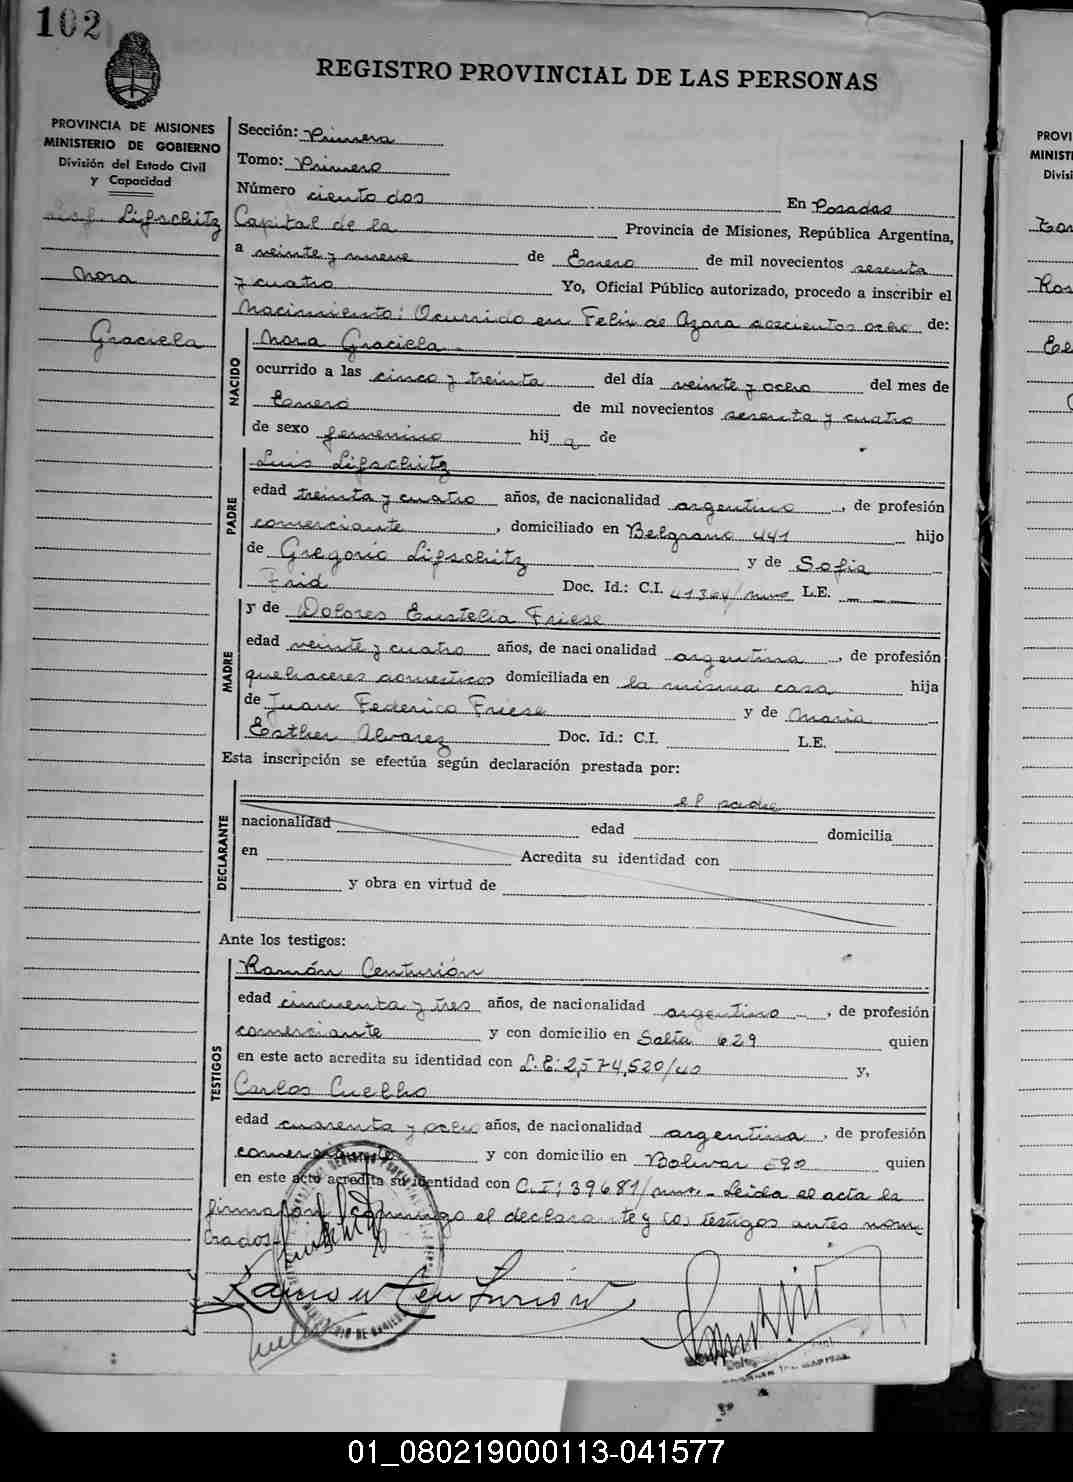 102
REGISTRO PROVINCIAL DE LAS PERSONAS
PROVINCIA DE MISIONES
MINISTERIO DE GOBIERNO
División del Estado Civil
y Capacidad
Lifschitz
Nora
Graciela
Sección: Primera
Tomo: Primero
Número ciento dos En Posadas
Capital de la Provincia de Misiones, República Argentina,
a veinte y nueve de Enero de mil novecientos sesenta
y cuatro Yo, Oficial Público autorizado, procedo a inscribir el
Nacimiento: Ocurrido en Felix de Azara doscientos ocho de:
NACIDO
Nora Graciela
ocurrido a las cinco y treinta del día veinte y ocho del mes de
Enero de mil novecientos sesenta y cuatro
de sexo femenino hij a de
PADRE
Luis Lifschitz
edad treinta y cuatro años, de nacionalidad argentino, de profesión
comerciante, domiciliado en Belgrano 441 hijo
de Gregorio Lifschitz y de Sofia
Frid Doc. Id.: C.I. 41364/mnes L.E.
MADRE
y de Dolores Eustelia Friese
edad veinte y cuatro años, de nacionalidad argentina, de profesión
quehaceres domesticos domiciliada en la misma casa hija
de Juan Federico Friese y de Maria
Esther Alvarez Doc. Id.: C.I. L.E.
Esta inscripción se efectúa según declaración prestada por:
DECLARANTE
el padre
nacionalidad edad domicilia
en Acredita su identidad con
y obra en virtud de
Ante los testigos:
TESTIGOS
Ramón Centurión
edad cincuenta y tres años, de nacionalidad argentino, de profesión
comerciante y con domicilio en Salta 629 quien
en este acto acredita su identidad con L.E: 2,574,520/40 y,
Carlos Cuelho
edad cuarenta y ocho años, de nacionalidad argentina, de profesión
comerciante y con domicilio en Bolivar 690 quien
en este acto acredita su identidad con C.I: 39681/mnes.- Leida el acta la
firmaron conmigo el declarante y los testigos antes nom
brados.-
Ramon Centurion
01_080219000113-041577